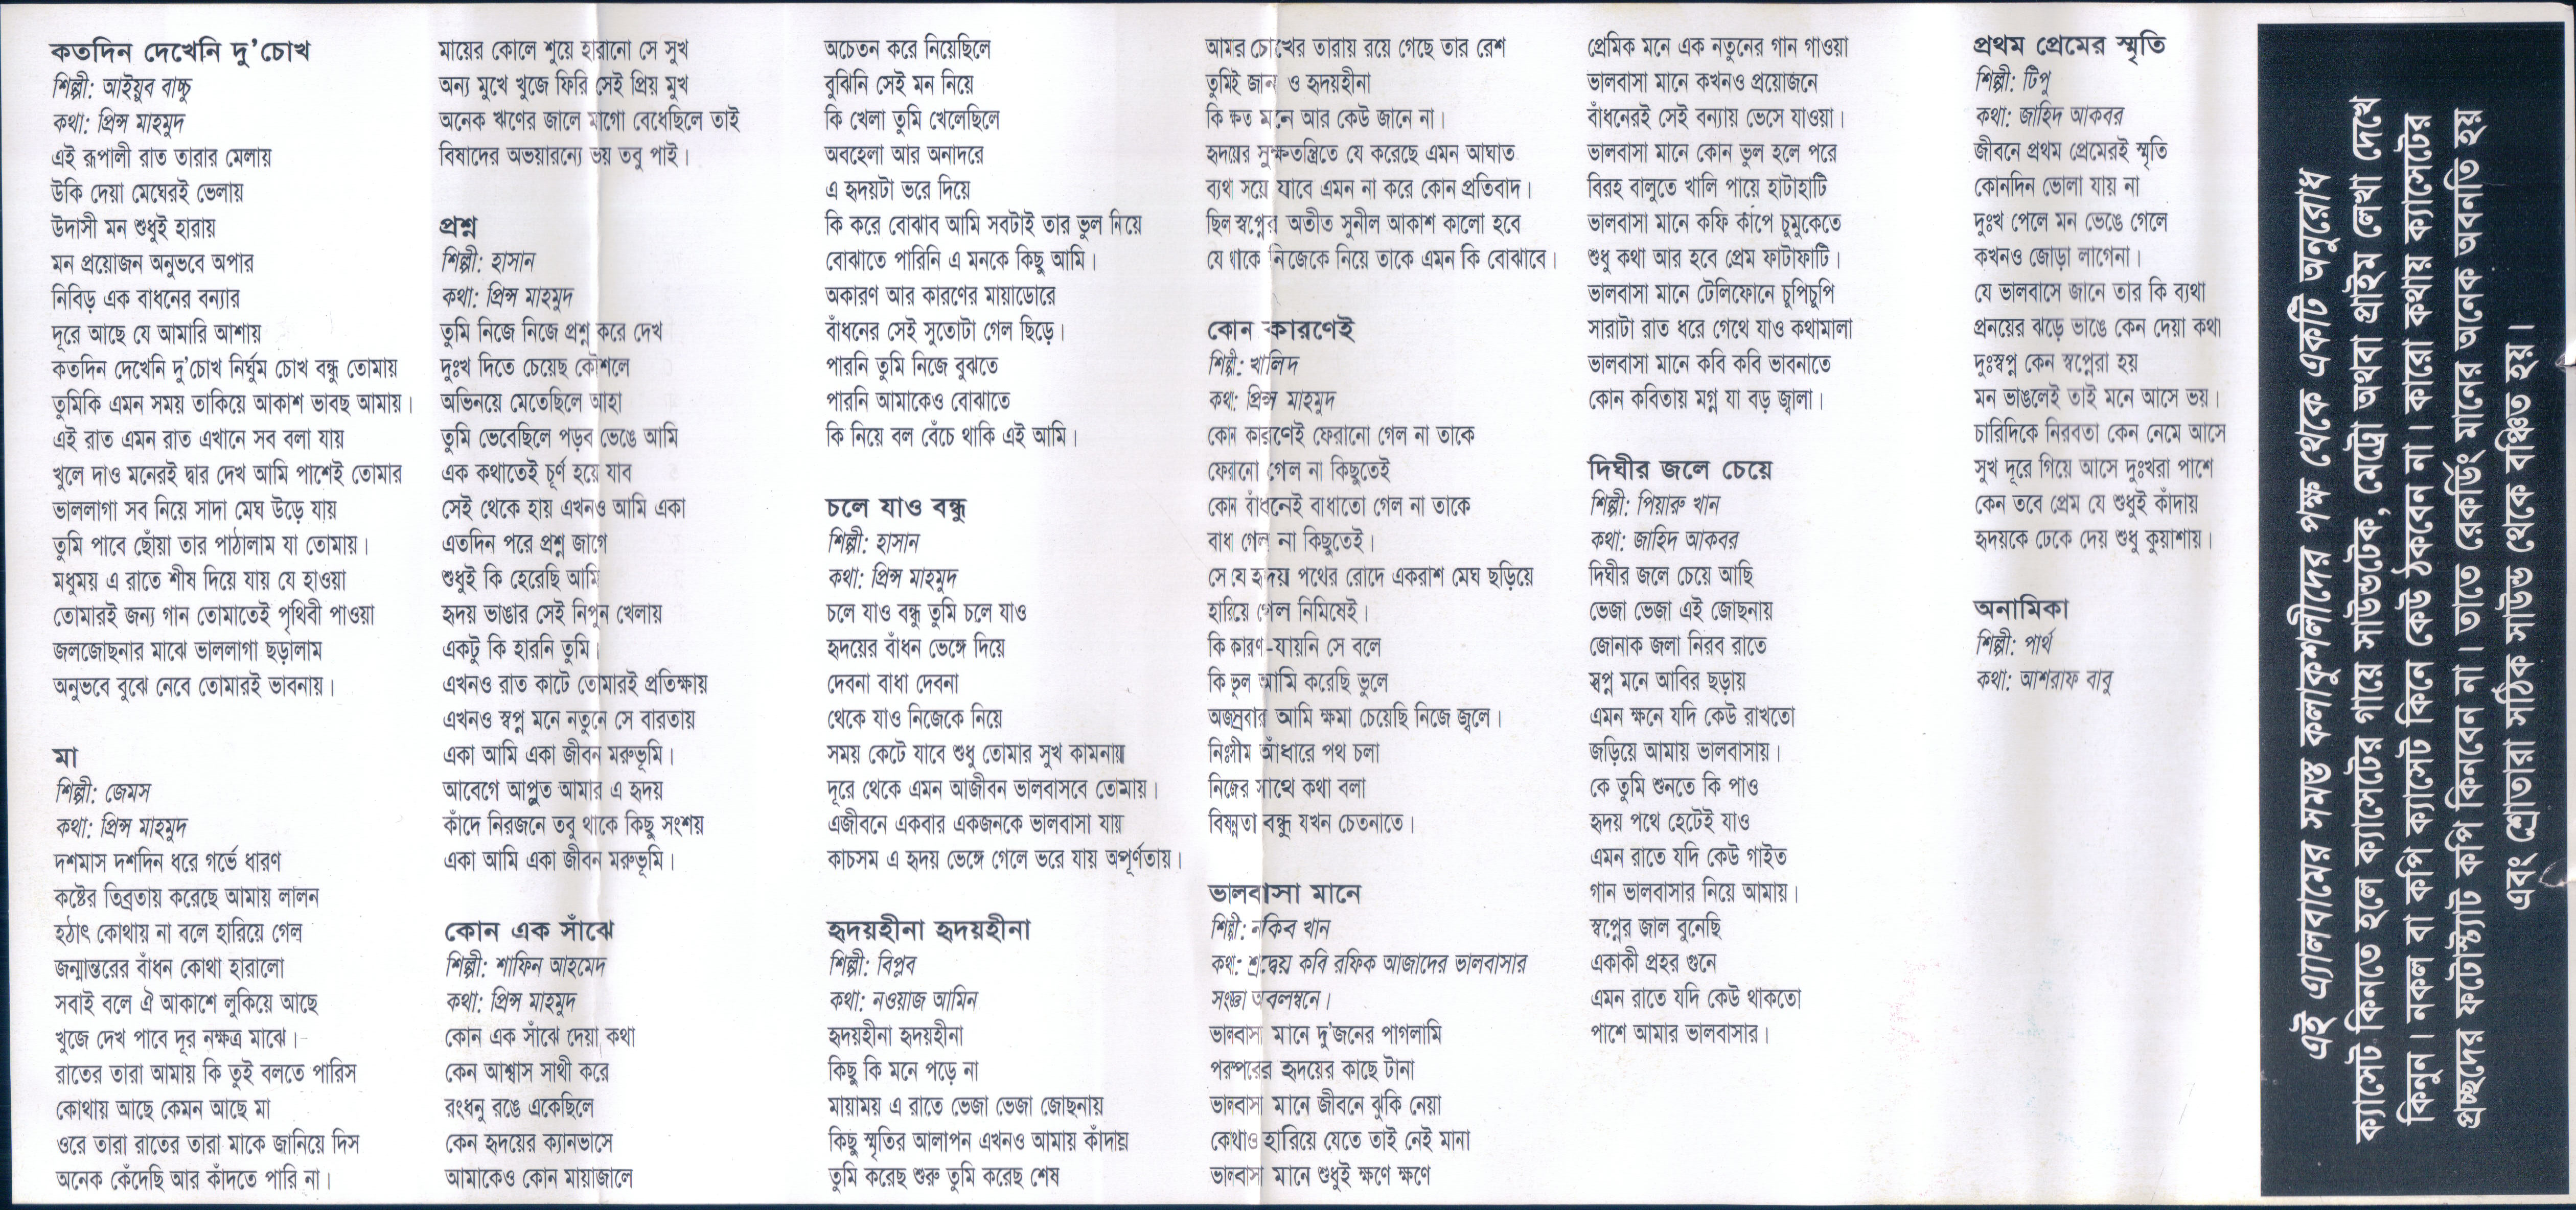 কতদিন দেখেনি দু'চোখ
শিল্পী: আইয়ুব বাচ্চু
কথা: প্রিন্স মাহমুদ
এই রূপালী রাত তারার মেলায়
উকি দেয়া মেঘেরই ভেলায়
উদাসী মন শুধুই হারায়
মন প্রয়োজন অনুভবে অপার
নিবিড় এক বাধনের বন্যার
দূরে আছে যে আমারি আশায়
কতদিন দেখেনি দু'চোখ নির্ঘুম চোখ বন্ধু তোমায়
তুমিকি এমন সময় তাকিয়ে আকাশ ভাবছ আমায়।
এই রাত এমন রাত এখানে সব বলা যায়
খুলে দাও মনেরই দ্বার দেখ আমি পাশেই তোমার
ভাললাগা সব নিয়ে সাদা মেঘ উড়ে যায়
তুমি পাবে ছোঁয়া তার পাঠালাম যা তোমায়।
মধুময় এ রাতে শীষ দিয়ে যায় যে হাওয়া
তোমারই জন্য গান তোমাতেই পৃথিবী পাওয়া
জলজোছনার মাঝে ভাললাগা ছড়ালাম
অনুভবে বুঝে নেবে তোমারই ভাবনায়।
মা
শিল্পী: জেমস
কথা: প্রিন্স মাহমুদ
দশমাস দশদিন ধরে গর্ভে ধারণ
কষ্টের তিব্রতায় করেছে আমায় লালন
হঠাৎ কোথায় না বলে হারিয়ে গেল
জন্মান্তরের বাঁধন কোথা হারালো
সবাই বলে ঐ আকাশে লুকিয়ে আছে
খুজে দেখ পাবে দূর নক্ষত্র মাঝে।
রাতের তারা আমায় কি তুই বলতে পারিস
কোথায় আছে কেমন আছে মা
ওরে তারা রাতের তারা মাকে জানিয়ে দিস
অনেক কেঁদেছি আর কাঁদতে পারি না।
মায়ের কোলে শুয়ে হারানো সে সুখ
অন্য মুখে খুজে ফিরি সেই প্রিয় মুখ
অনেক ঋণের জালে মাগো বেধেছিলে তাই
বিষাদের অভয়ারন্যে ভয় তবু পাই।
প্রশ্ন
শিল্পী: হাসান
কথা: প্রিন্স মাহমুদ
তুমি নিজে নিজে প্রশ্ন করে দেখ
দুঃখ দিতে চেয়েছ কৌশলে
অভিনয়ে মেতেছিলে আহা
তুমি ভেবেছিলে পড়ব ভেঙে আমি
এক কথাতেই চূর্ণ হয়ে যাব
সেই থেকে হায় এখনও আমি একা
এতদিন পরে প্রশ্ন জাগে
শুধুই কি হেরেছি আমি
হৃদয় ভাঙার সেই নিপুন খেলায়
একটু কি হারনি তুমি।
এখনও রাত কাটে তোমারই প্রতিক্ষায়
এখনও স্বপ্ন মনে নতুনে সে বারতায়
একা আমি একা জীবন মরুভূমি।
আবেগে আপ্লুত আমার এ হৃদয়
কাঁদে নিরজনে তবু থাকে কিছু সংশয়
একা আমি একা জীবন মরুভূমি।
কোন এক সাঁঝে
শিল্পী: শাফিন আহমেদ
কথা: প্রিন্স মাহমুদ
কোন এক সাঁঝে দেয়া কথা
কেন আশ্বাস সাথী করে
রংধনু রঙে একেছিলে
কেন হৃদয়ের ক্যানভাসে
আমাকেও কোন মায়াজালে
অচেতন করে নিয়েছিলে
বুঝিনি সেই মন নিয়ে
কি খেলা তুমি খেলেছিলে
অবহেলা আর অনাদরে
এ হৃদয়টা ভরে দিয়ে
কি করে বোঝাব আমি সবটাই তার ভুল নিয়ে
বোঝাতে পারিনি এ মনকে কিছু আমি।
অকারণ আর কারণের মায়াডোরে
বাঁধনের সেই সুতোটা গেল ছিড়ে।
পারনি তুমি নিজে বুঝতে
পারনি আমাকেও বোঝাতে
কি নিয়ে বল বেঁচে থাকি এই আমি।
চলে যাও বন্ধু
শিল্পী: হাসান
কথা: প্রিন্স মাহমুদ
চলে যাও বন্ধু তুমি চলে যাও
হৃদয়ের বাঁধন ভেঙ্গে দিয়ে
দেবনা বাধা দেবনা
থেকে যাও নিজেকে নিয়ে
সময় কেটে যাবে শুধু তোমার সুখ কামনায়
দূরে থেকে এমন আজীবন ভালবাসবে তোমায়।
এজীবনে একবার একজনকে ভালবাসা যায়
কাচসম এ হৃদয় ভেঙ্গে গেলে ভরে যায় অপূর্ণতায়।
হৃদয়হীনা হৃদয়হীনা
শিল্পী: বিপ্লব
কথা: নওয়াজ আমিন
হৃদয়হীনা হৃদয়হীনা
কিছু কি মনে পড়ে না
মায়াময় এ রাতে ভেজা ভেজা জোছনায়
কিছু স্মৃতির আলাপন এখনও আমায় কাঁদায়
তুমি করেছ শুরু তুমি করেছ শেষ
আমার চোখের তারায় রয়ে গেছে তার রেশ
তুমিই জান ও হৃদয়হীনা
কি ক্ষত মনে আর কেউ জানে না।
হৃদয়ের সুক্ষতন্ত্রিতে যে করেছে এমন আঘাত
ব্যথা সয়ে যাবে এমন না করে কোন প্রতিবাদ।
ছিল স্বপ্নের অতীত সুনীল আকাশ কালো হবে
যে থাকে নিজেকে নিয়ে তাকে এমন কি বোঝাবে।
কোন কারণেই
শিল্পী: খালিদ
কথা: প্রিন্স মাহমুদ
কোন কারণেই ফেরানো গেল না তাকে
ফেরানো গেল না কিছুতেই
কোন বাঁধনেই বাধাতো গেল না তাকে
বাধা গেল না কিছুতেই।
সে যে হৃদয় পথের রোদে একরাশ মেঘ ছড়িয়ে
হারিয়ে গেল নিমিষেই।
কি কারণ-যায়নি সে বলে
কি ভুল আমি করেছি ভুলে
অজস্রবার আমি ক্ষমা চেয়েছি নিজে জ্বলে।
নিঃসীম আঁধারে পথ চলা
নিজের সাথে কথা বলা
বিষন্নতা বন্ধু যখন চেতনাতে।
ভালবাসা মানে
শিল্পী: নকিব খান
কথা: শ্রদ্ধেয় কবি রফিক আজাদের ভালবাসার
সংজ্ঞা অবলম্বনে।
ভালবাসা মানে দু'জনের পাগলামি
পরস্পরের হৃদয়ের কাছে টানা
ভালবাসা মানে জীবনে ঝুকি নেয়া
কোথাও হারিয়ে যেতে তাই নেই মানা
ভালবাসা মানে শুধুই ক্ষণে ক্ষণে
প্রেমিক মনে এক নতুনের গান গাওয়া
ভালবাসা মানে কখনও প্রয়োজনে
বাঁধনেরই সেই বন্যায় ভেসে যাওয়া।
ভালবাসা মানে কোন ভুল হলে পরে
বিরহ বালুতে খালি পায়ে হাটাহাটি
ভালবাসা মানে কফি কাপে চুমুকেতে
শুধু কথা আর হবে প্রেম ফাটাফাটি।
ভালবাসা মানে টেলিফোনে চুপিচুপি
সারাটা রাত ধরে গেথে যাও কথামালা
ভালবাসা মানে কবি কবি ভাবনাতে
কোন কবিতায় মগ্ন যা বড় জ্বালা।
দিঘীর জলে চেয়ে
শিল্পী: পিয়ারু খান
কথা: জাহিদ আকবর
দিঘীর জলে চেয়ে আছি
ভেজা ভেজা এই জোছনায়
জোনাক জলা নিরব রাতে
স্বপ্ন মনে আবির ছড়ায়
এমন ক্ষনে যদি কেউ রাখতো
জড়িয়ে আমায় ভালবাসায়।
কে তুমি শুনতে কি পাও
হৃদয় পথে হেটেই যাও
এমন রাতে যদি কেউ গাইত
গান ভালবাসার নিয়ে আমায়।
স্বপ্নের জাল বুনেছি
একাকী প্রহর গুনে
এমন রাতে যদি কেউ থাকতো
পাশে আমার ভালবাসার।
প্রথম প্রেমের স্মৃতি
শিল্পী: টিপু
কথা: জাহিদ আকবর
জীবনে প্রথম প্রেমেরই স্মৃতি
কোনদিন ভোলা যায় না
দুঃখ পেলে মন ভেঙে গেলে
কখনও জোড়া লাগেনা।
যে ভালবাসে জানে তার কি ব্যথা
প্রনয়ের ঝড়ে ভাঙে কেন দেয়া কথা
দুঃস্বপ্ন কেন স্বপ্নেরা হয়
মন ভাঙলেই তাই মনে আসে ভয়।
চারিদিকে নিরবতা কেন নেমে আসে
সুখ দূরে গিয়ে আসে দুঃখরা পাশে
কেন তবে প্রেম যে শুধুই কাঁদায়
হৃদয়কে ঢেকে দেয় শুধু কুয়াশায়।
অনামিকা
শিল্পী: পার্থ
কথা: আশরাফ বাবু
এই এ্যালবামের সমস্ত কলাকুশলীদের পক্ষ থেকে একটি অনুরোধ
ক্যাসেট কিনতে হলে ক্যাসেটের গায়ে সাউন্ডটেক, মেট্রো অথবা প্রাইম লেখা দেখে
কিনুন। নকল বা কপি ক্যাসেট কিনে কেউ ঠকবেন না। কারো কথায় ক্যাসেটের
প্রচ্ছদের ফটোস্ট্যাট কপি কিনবেন না। তাতে রেকর্ডিং মানের অনেক অবনতি হয়
এবং শ্রোতারা সঠিক সাউন্ড থেকে বঞ্চিত হয়।